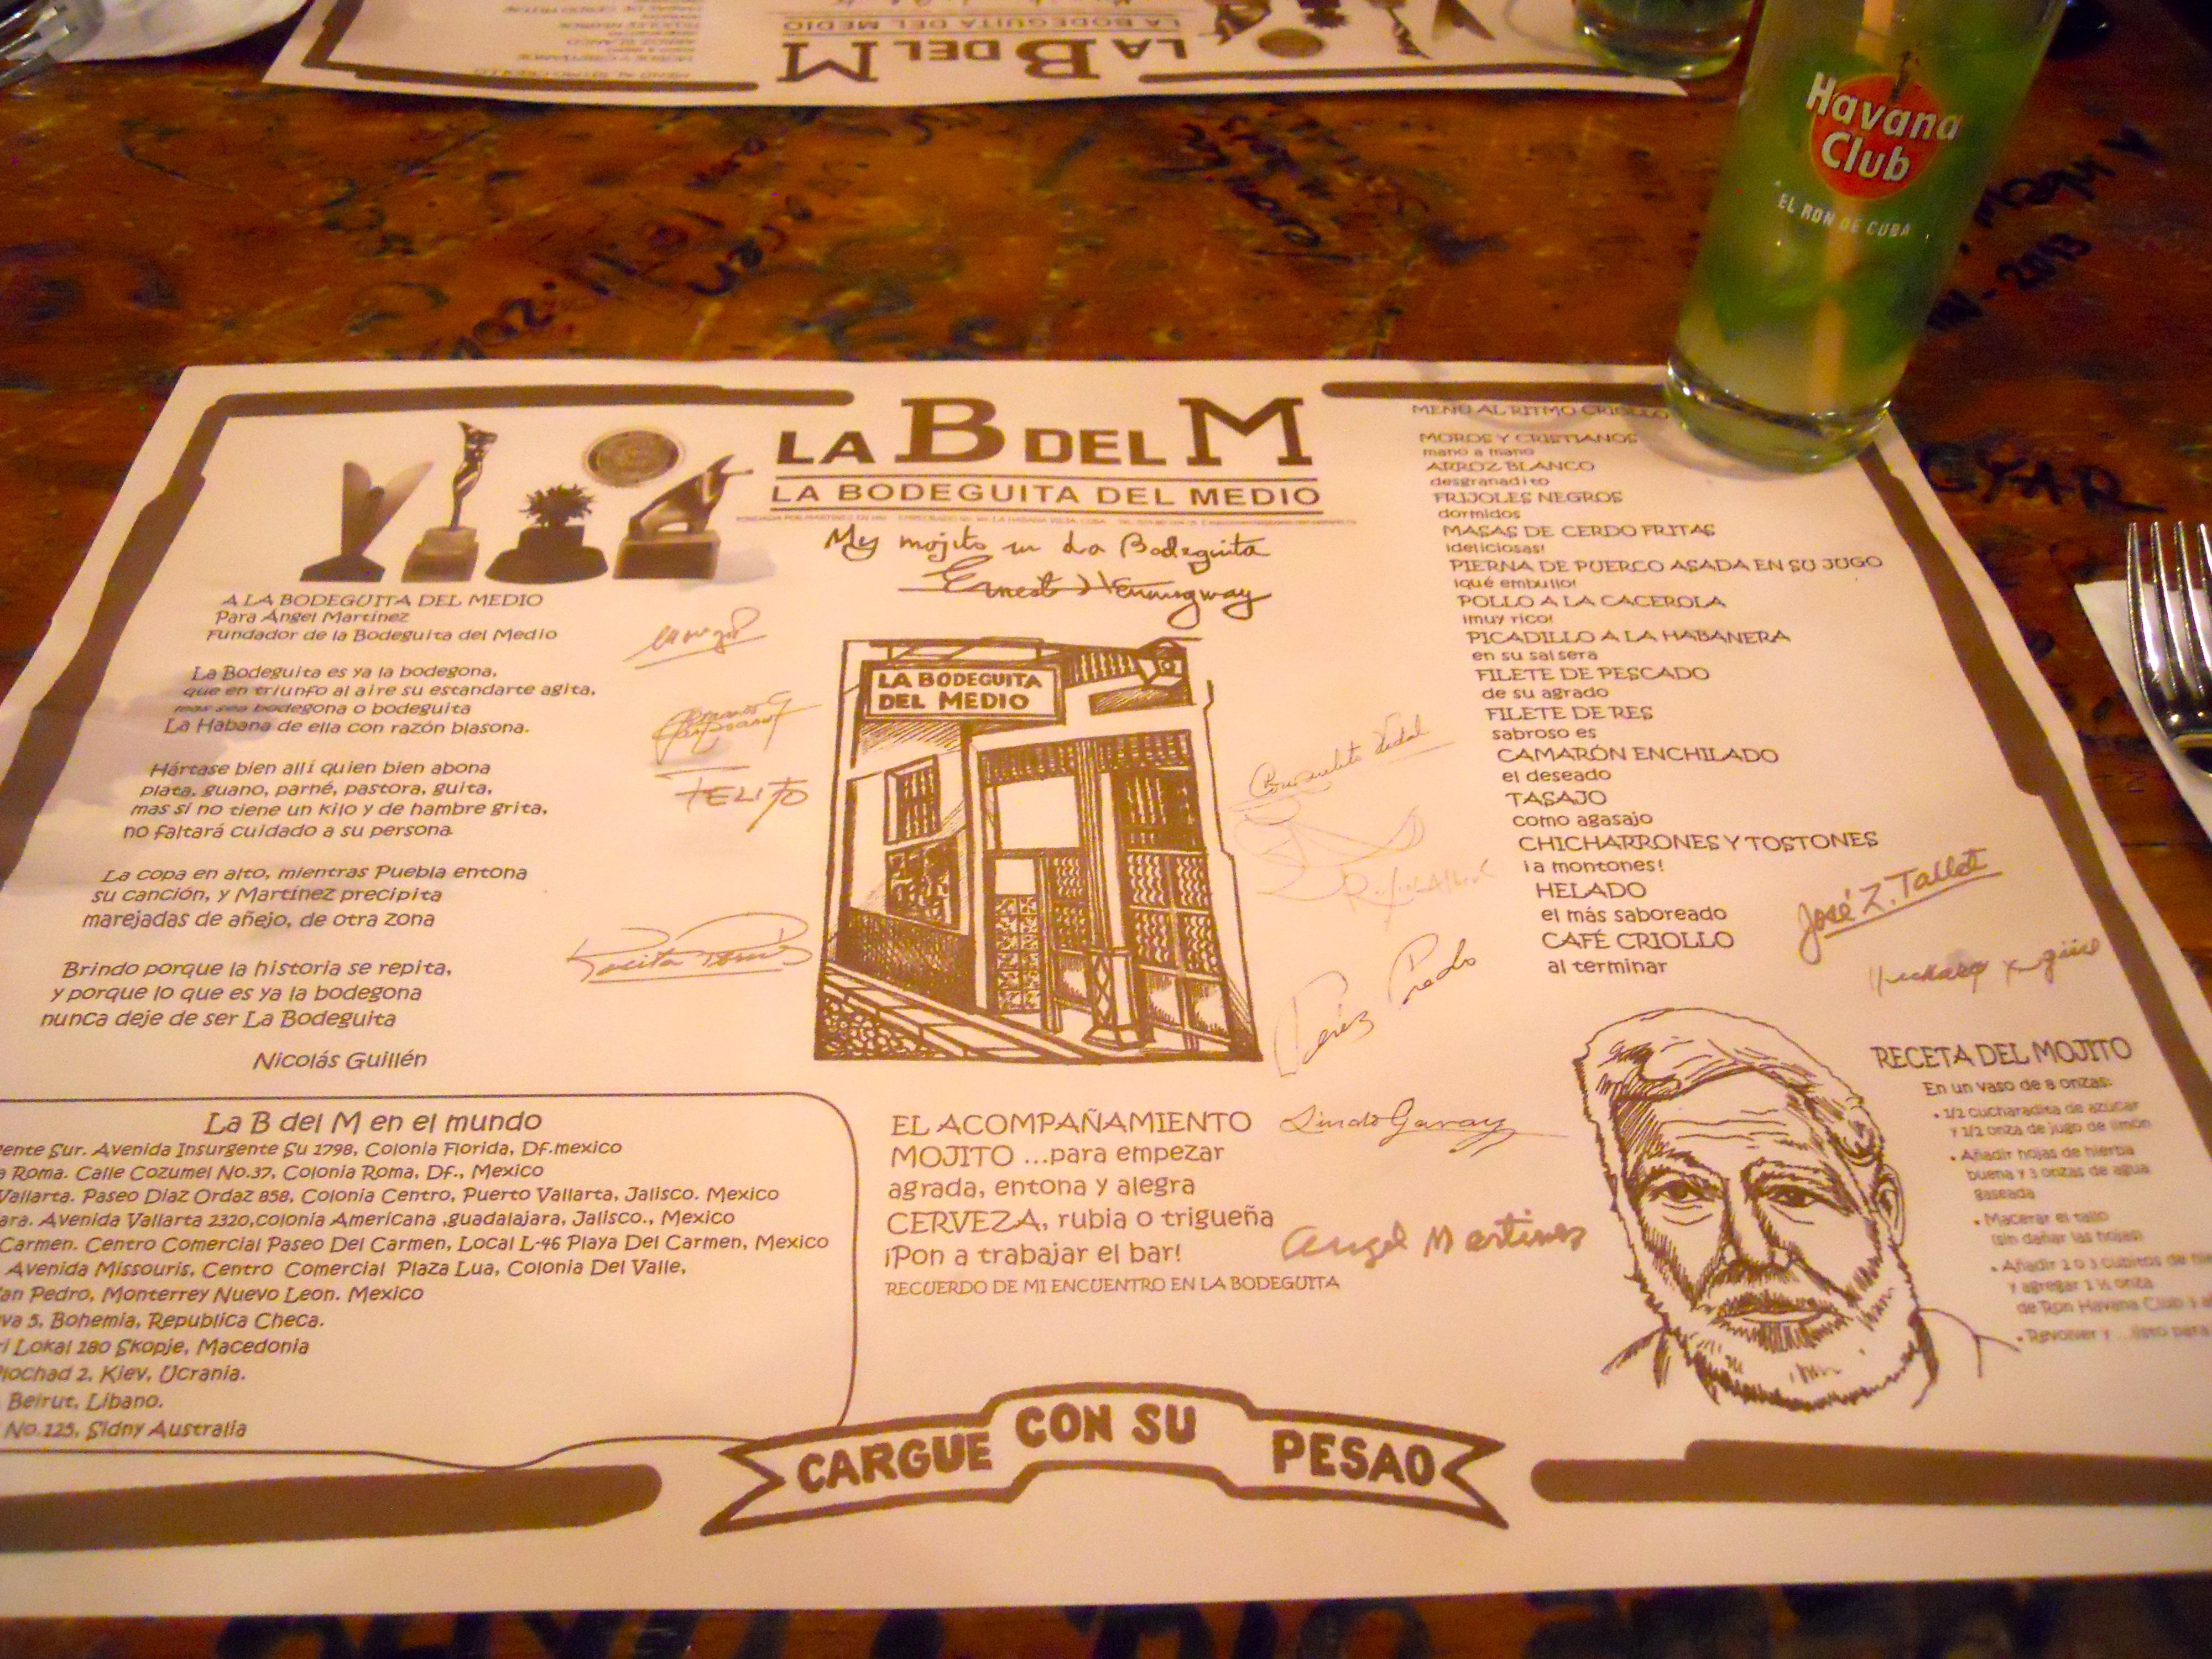 LA B DEL M
LA BODEGUITA DEL MEDIO
Havana
Club
EL RON DE CUBA
LA B DEL M
LA BODEGUITA DEL MEDIO
My mojito in La Bodeguita
Ernest Hemingway
A LA BODEGUITA DEL MEDIO
Para Ángel Martínez
Fundador de la Bodeguita del Medio
La Bodeguita es ya la bodegona,
que en triunfo al aire su estandarte agita,
mas sea bodegona o bodeguita
La Habana de ella con razón blasona.
Hártase bien allí quien bien abona
plata, guano, parné, pastora, guita,
mas si no tiene un kilo y de hambre grita,
no faltará cuidado a su persona
La copa en alto, mientras Puebla entona
su canción, y Martínez precipita
marejadas de añejo, de otra zona
Brindo porque la historia se repita,
y porque lo que es ya la bodegona
nunca deje de ser La Bodeguita
Nicolás Guillén
FELITO
LA BODEGUITA
DEL MEDIO
Consuelito Vidal
Pérez Prado
MENU AL RITMO CRIOLLO
MOROS Y CRISTIANOS
mano a mano
ARROZ BLANCO
desgranadito
FRIJOLES NEGROS
dormidos
MASAS DE CERDO FRITAS
¡deliciosas!
PIERNA DE PUERCO ASADA EN SU JUGO
¡qué embullo!
POLLO A LA CACEROLA
¡muy rico!
PICADILLO A LA HABANERA
en su salsera
FILETE DE PESCADO
de su agrado
FILETE DE RES
sabroso es
CAMARÓN ENCHILADO
el deseado
TASAJO
como agasajo
CHICHARRONES Y TOSTONES
¡a montones!
HELADO
el más saboreado
CAFÉ CRIOLLO
al terminar
José Z. Tallet
La B del M en el mundo
ente Sur. Avenida Insurgente Su 1798, Colonia Florida, Df.mexico
Roma. Calle Cozumel No.37, Colonia Roma, Df., Mexico
Vallarta. Paseo Diaz Ordaz 858, Colonia Centro, Puerto Vallarta, Jalisco. Mexico
ara. Avenida Vallarta 2320,colonia Americana ,guadalajara, Jalisco., Mexico
Carmen. Centro Comercial Paseo Del Carmen, Local L-46 Playa Del Carmen, Mexico
Avenida Missouris, Centro Comercial Plaza Lua, Colonia Del Valle,
an Pedro, Monterrey Nuevo Leon. Mexico
va 5, Bohemia, Republica Checa.
Lokal 180 Skopje, Macedonia
lochad 2, Kiev, Ucrania.
Beirut, Libano.
No.125, Sidny Australia
EL ACOMPAÑAMIENTO
MOJITO ...para empezar
agrada, entona y alegra
CERVEZA, rubia o trigueña
¡Pon a trabajar el bar!
RECUERDO DE MI ENCUENTRO EN LA BODEGUITA
Sindo Garay
Angel Martinez
RECETA DEL MOJITO
En un vaso de 8 onzas:
• 1/2 cucharadita de azúcar
y 1/2 onza de jugo de limón
• Añadir hojas de hierba
buena y 3 onzas de agua
gaseada
• Macerar el tallo
(sin dañar las hojas)
• Añadir 2 o 3 cubitos de
y agregar 1 ½ onza
de Ron Havana Club 3
• Revolver y ...listo para
CARGUE CON SU PESAO